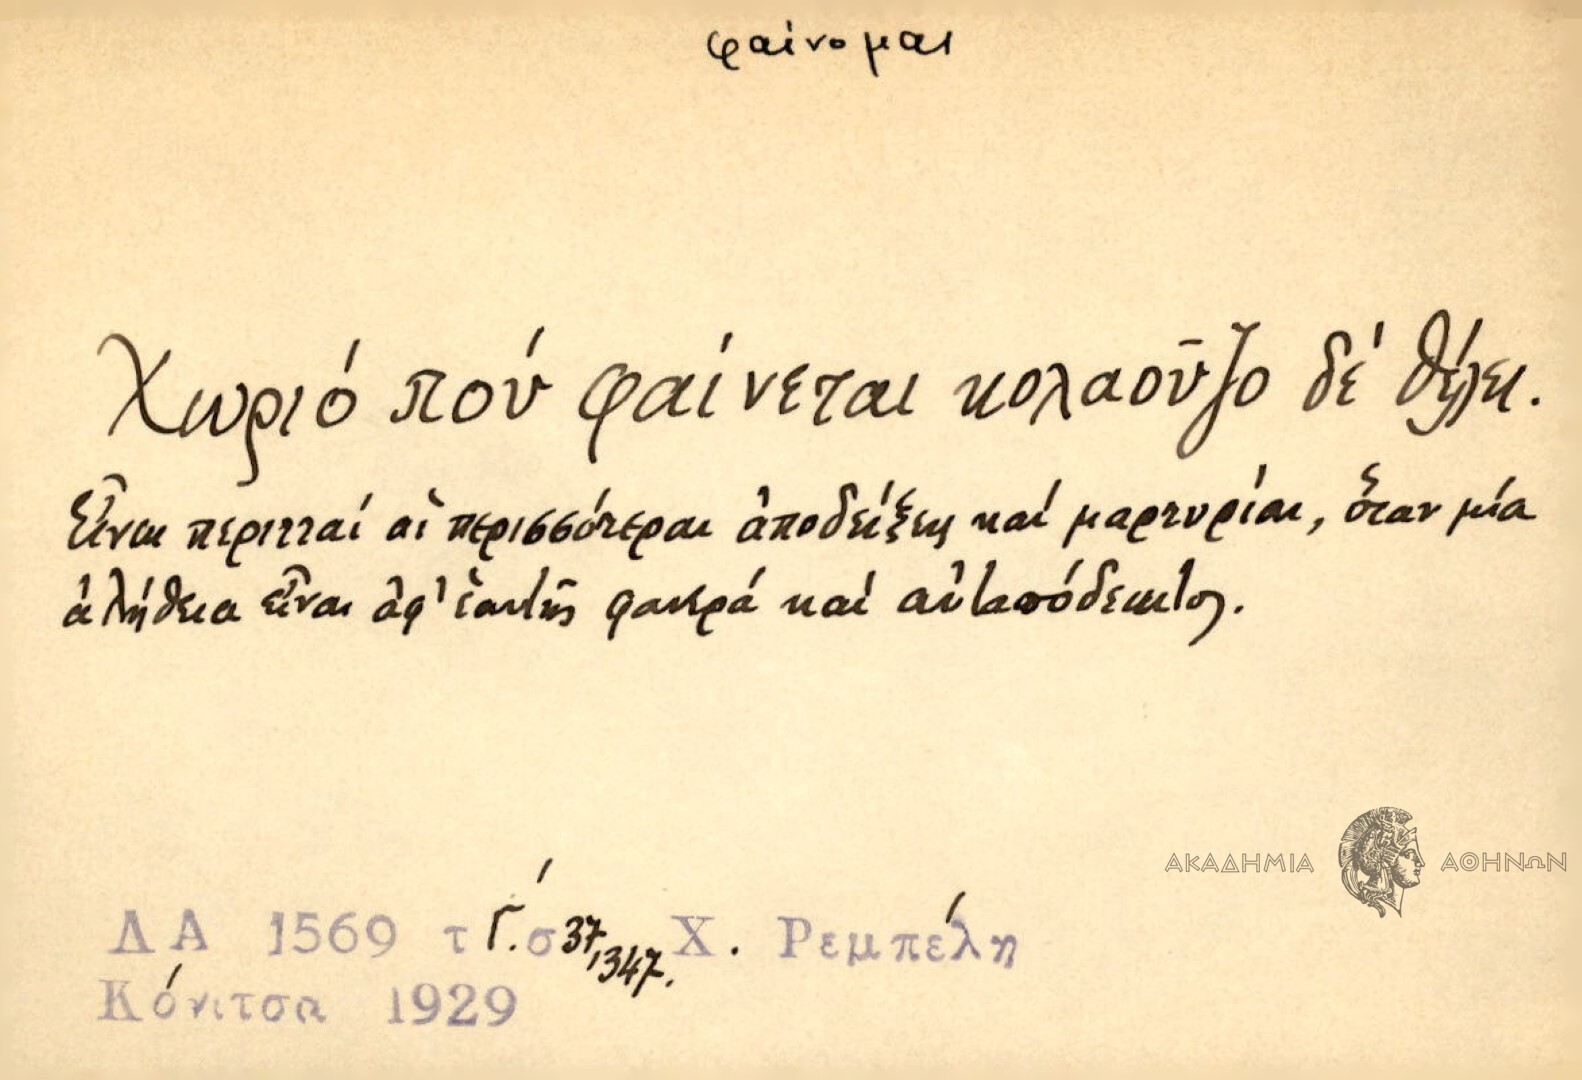 φαίνομαι
Χωριό πού φαίνεται κολαοῦζο δέ θέλει.
Εἶναι περιτταί αἱ περισσότεραι ἀποδείξεις καί μαρτυρίαι, ὅταν μία
ἀλήθεια εἶναι ἀφ' ἑαυτῆς φανερά καί αὐταπόδεικτος.
ΑΚΑΔΗΜΙΑ ΑΘΗΝΩΝ
ΛΑ 1569 τ Γ΄. σ 37,347. Χ. Ρεμπέλη
Κόνιτσα 1929